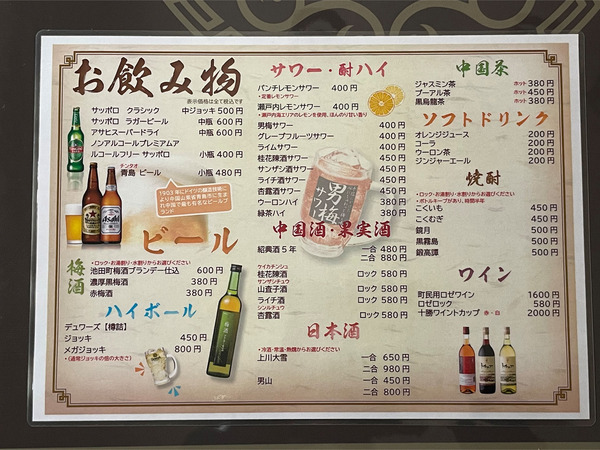 お飲み物
表示価格は全て税込です
サッポロ クラシック 中ジョッキ 500円
サッポロ ラガービール 中瓶 600円
アサヒスーパードライ 中瓶 600円
ノンアルコールプレミアムア
ルコールフリー サッポロ 小瓶 400円
チンタオ
青島 ビール 小瓶 480円
1903年にドイツの醸造技術に
より中国山東省青島市に生ま
れ中国で最も有名なビールブ
ランド
ビール
梅酒
・ロック・お湯割り・水割りからお選びください
池田町梅酒ブランデー仕込 600円
濃厚黒梅酒 380円
赤梅酒 380円
ハイボール
デュワーズ【樽詰】
ジョッキ 450円
メガジョッキ 800円
・(通常ジョッキの倍の大きさ)
サワー・酎ハイ
パンチレモンサワー 400円
・定番レモンサワー
瀬戸内レモンサワー 400円
・瀬戸内海エリアのレモンを使用、ほんのり甘い香り
男梅サワー 400円
グレープフルーツサワー 400円
ライムサワー 400円
桂花陳酒サワー 450円
サンザシ酒サワー 450円
ライチ酒サワー 450円
杏露酒サワー 450円
ウーロンハイ 380円
緑茶ハイ 380円
男梅サワー
中国酒・果実酒
紹興酒5年 一合 480円
二合 880円
ケイカチンシュ
桂花陳酒 ロック 580円
サンザシチュウ
山査子酒 ロック 580円
ライチ酒 ロック 580円
シンルチュウ
杏露酒 ロック 580円
日本酒
・冷酒・常温・熱燗からお選びください
上川大雪 一合 650円
二合 980円
男山 一合 450円
二合 800円
中国茶
ジャスミン茶 ホット 380円
プーアル茶 ホット 450円
黒烏龍茶 ホット 380円
ソフトドリンク
オレンジジュース 200円
コーラ 200円
ウーロン茶 200円
ジンジャーエール 200円
焼酎
・ロック・お湯割り・水割りからお選びください
・ボトルキープがあり、時間半年
こくいも 450円
こくむぎ 450円
鏡月 500円
黒霧島 500円
鍛高譚 500円
ワイン
町民用ロゼワイン 1600円
ロゼロック 580円
十勝ワイントカップ 赤・白 2000円